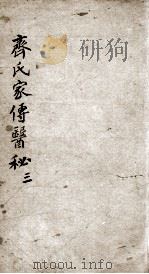 齊氏家傳醫秘 三
mtoou.info